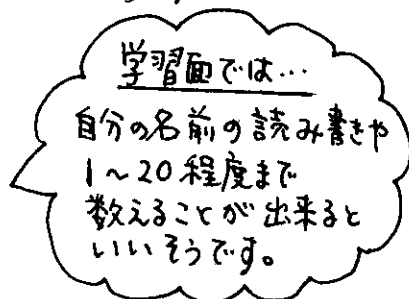 学習面では…
自分の名前の読み書きや
1～20程度まで
数えることが出来ると
いいそうです。